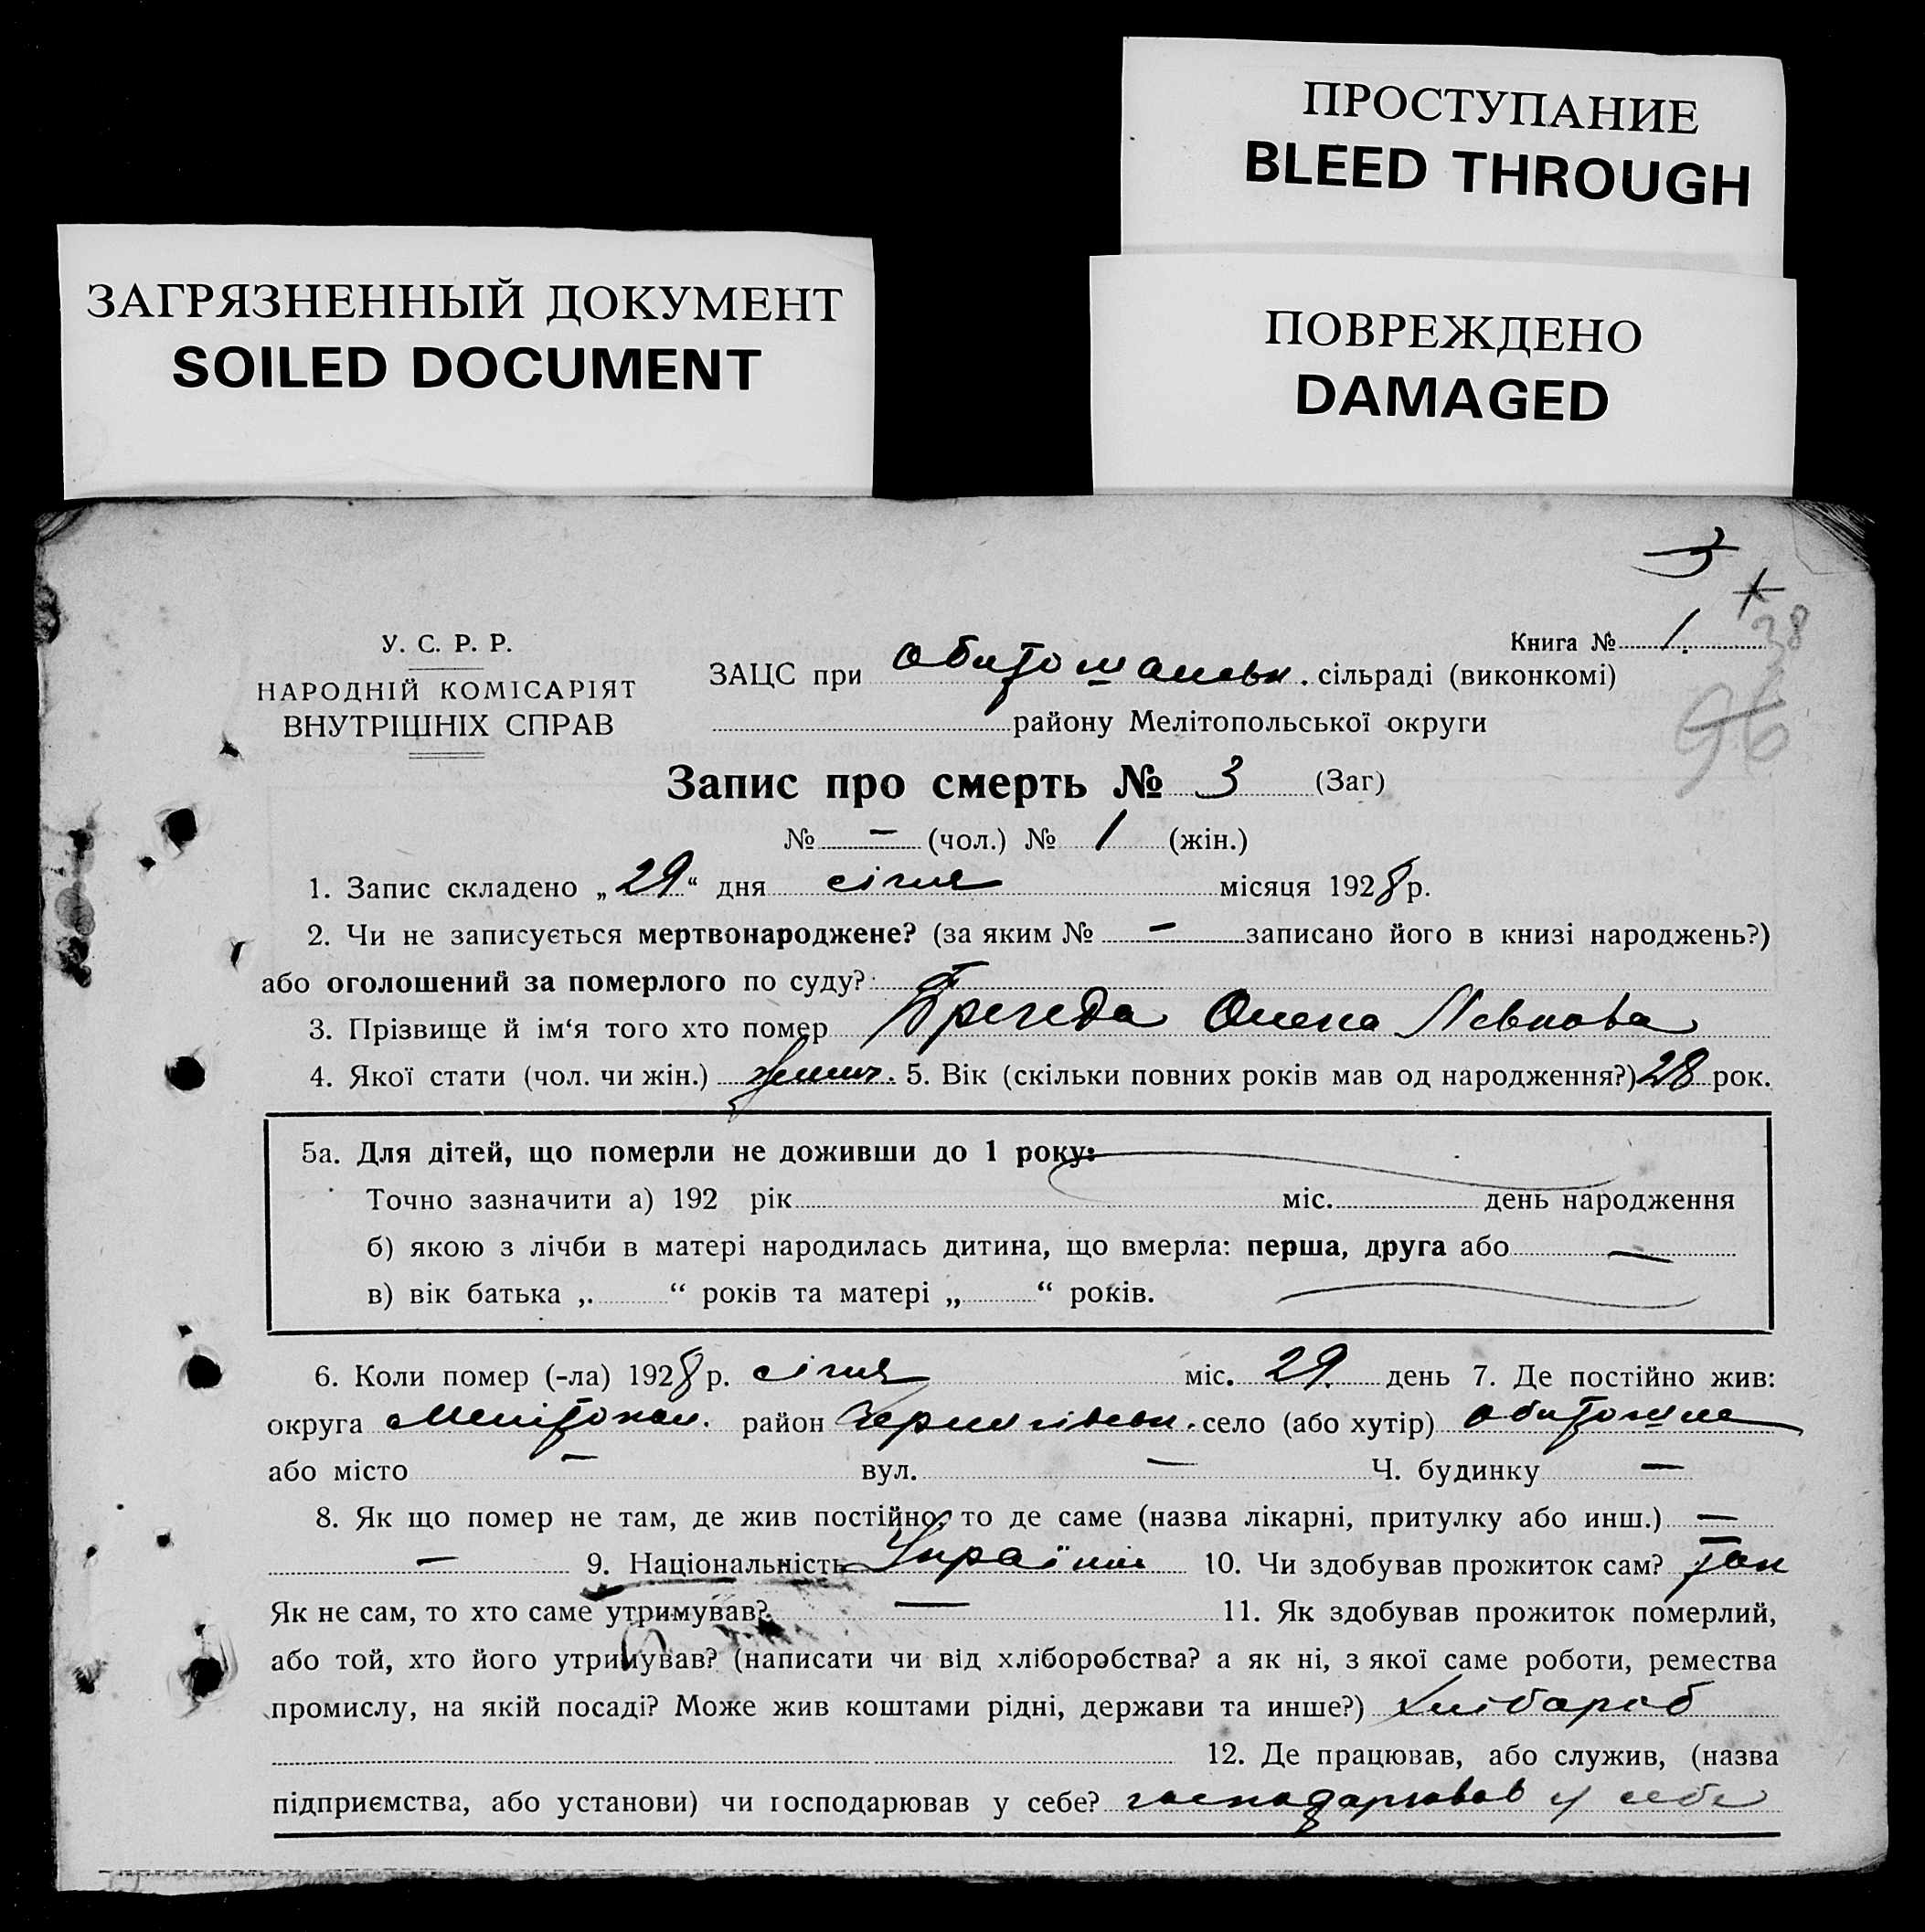 ПРОСТУПАНИЕ
BLEED THROUGH
ЗАГРЯЗНЕННЫЙ ДОКУМЕНТ
SOILED DOCUMENT
ПОВРЕЖДЕНО
DAMAGED
3
У. С. Р. Р.
НАРОДНІЙ КОМІСАРІЯТ
ВНУТРІШНІХ СПРАВ
Книга № 1.
38
96
ЗАЦС при Обиточанськ. сільраді (виконкомі)
району Мелітопольської округи
Запис про смерть № 3 (Заг)
№ — (чол.) № 1 (жін.)
1. Запис складено „29“ дня січня місяця 1928 р.
2. Чи не записується мертвонароджене? (за яким № — записано його в книзі народжень?)
або оголошений за померлого по суду? —
3. Прізвище й ім‘я того хто помер Олена
4. Якої стати (чол. чи жін.) 5. Вік (скільки повних років мав од народження?) 28 рок.
5а. Для дітей, що померли не доживши до 1 року:
Точно зазначити а) 192 рік міс. день народження
б) якою з лічби в матері народилась дитина, що вмерла: перша, друга або —
в) вік батька „ “ років та матері „ “ років.
6. Коли помер (-ла) 1928 р. січня міс. 29. день 7. Де постійно жив:
округа Мелітопол. район Чернигівськ. село (або хутір) Обиточне
або місто — вул. — Ч. будинку —
8. Як що помер не там, де жив постійно, то де саме (назва лікарні, притулку або инш.) —
— 9. Національність 10. Чи здобував прожиток сам? так
Як не сам, то хто саме утримував? — 11. Як здобував прожиток померлий,
або той, хто його утримував? (написати чи від хліборобства? а як ні, з якої саме роботи, ремества
промислу, на якій посаді? Може жив коштами рідні, держави та инше?) хлібороб
12. Де працював, або служив, (назва
підприємства, або установи) чи господарював у себе? господарював у себе